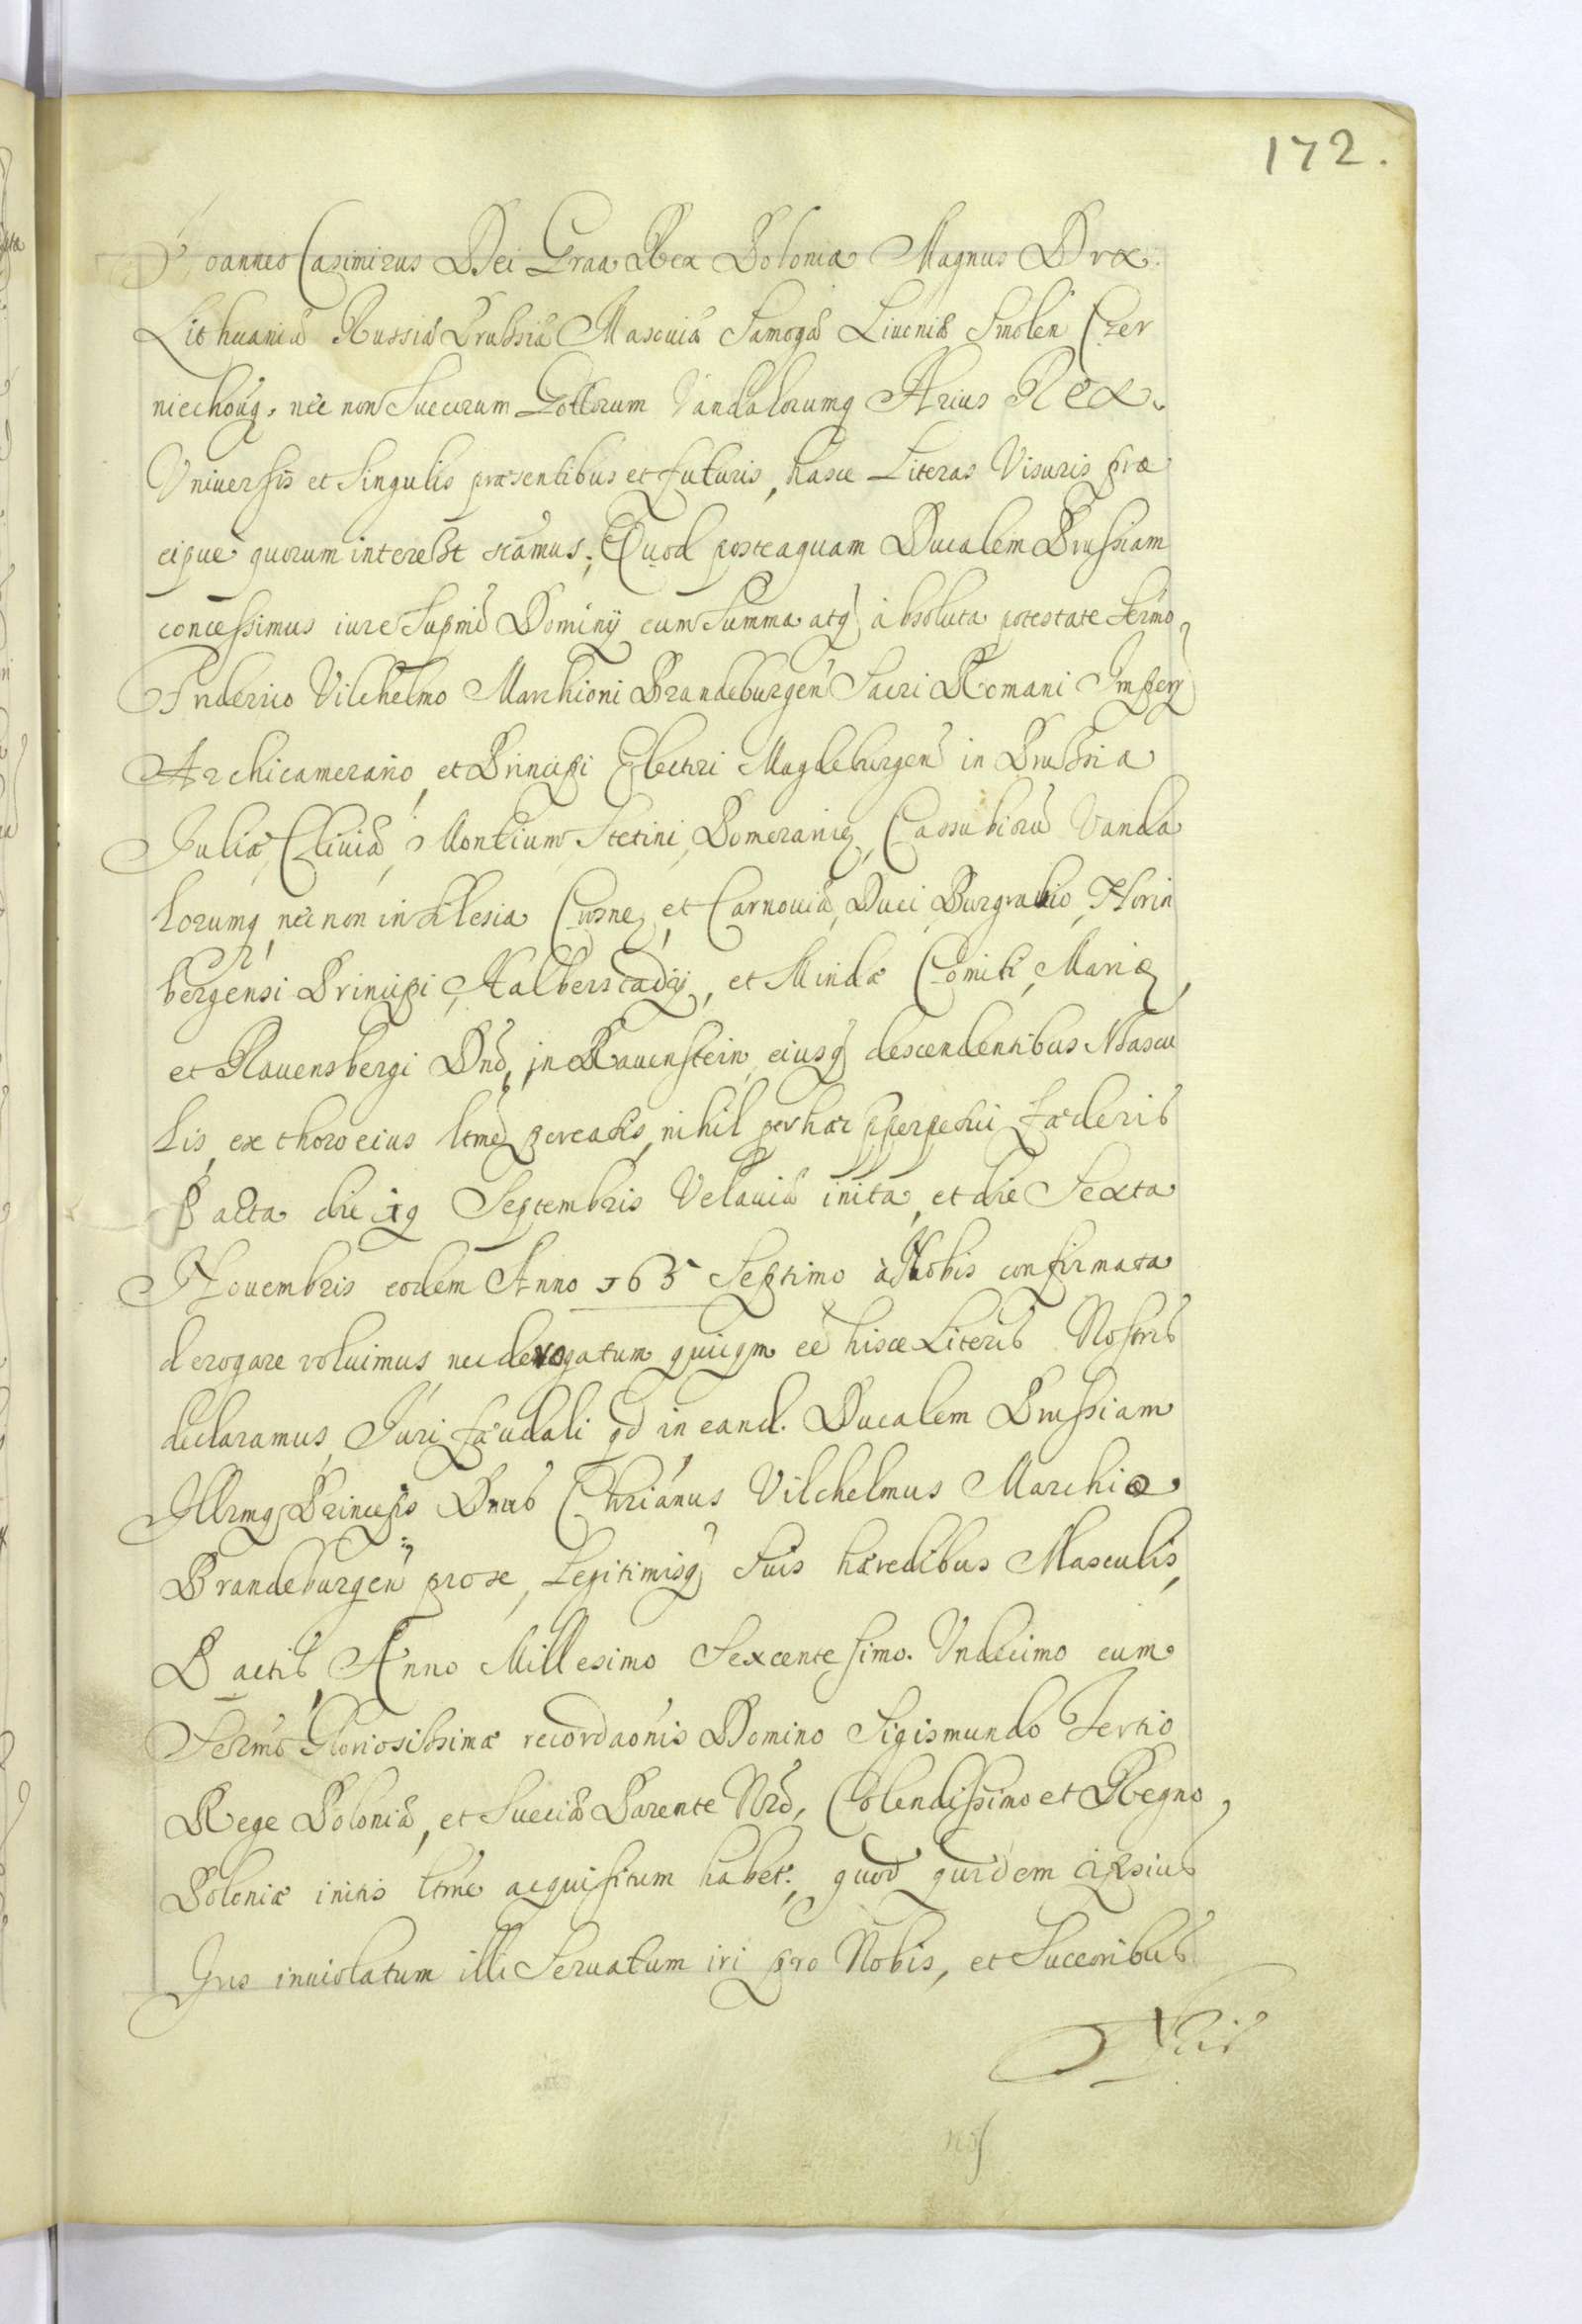 172.
Joannes Casimirus Dei Graa Rex Poloniæ Magnus Dux
Lithuaniæ Russiæ Prussiæ Masouiæ Samogæ Liuoniæ Smolen Czer
niechouq. nec non Suecorum Gottorum Vandalorumq Hrius Rex.
Vniuersis et Singulis præsentibus et futuris, hasce Literas Visuris præ
cipue quorum interest sciamus; Quod posteaquam Ducalem Prussiam
concessimus iure Supmi Dominij cum Summa atq absoluta potestate Sermo
Friderico Vilchelmo Marchioni Brandeburgen Sacri Romani Impery
Archicamerario, et Principi Electori Magdeburgen in Prussia
Juliæ, Cliuiæ, Montium, Stetini, Pomeraniæ, Cassubioru Vanda
lorumq nec non in Silesia Crosnæ, et Carnouiæ, Duci, Burgrabio, Norin
bergensi Principi, Halberstadij, et Mindæ Comiti, Mariæ,
et Rauensbergi Dnō, in Rauenstein, eiusq descendentibus Mascu
lis, ex thoro eius ltme procreatis, nihil per hæc pperpetui fæderis
Pacta die 19 Septembris Velauiæ inita, et die Sexta
Nouembris eodem Anno 165 Septimo à Nobis confirmata
derogare voluimus, nec derogatum quicqm eē hisce Literis Nostris
declaramus, Juri fæudali qd in eand. Ducalem Prussiam
Illrmq Princeps Dnus Chrianus Vilchelmus Marchio
Brandeburgen pro se, Legitimisq Suis hæredibus Masculis,
Pactis, Anno Millesimo Sexcentesimo. Vndecimo cum
Sermo Gloriosissimæ recordaonis Domino Sigismundo Tertio
Rege Poloniæ, et Sueciæ Parente Nrō, Colendissimo et Regno
Poloniæ initis ltme acquisitum habet; quod quidem ipsius
Jus inuiolatum illi Seruatum iri pro Nobis, et Successoribus